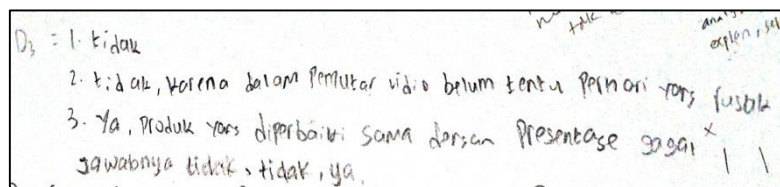 D3 = 1. tidak
2. tidak, karena dalam Pemutar vidio belum tentu yang rusak
3. Ya, Produk yang diperbaiki sama dengan Presentase gagal
jawabnya tidak, tidak, ya.